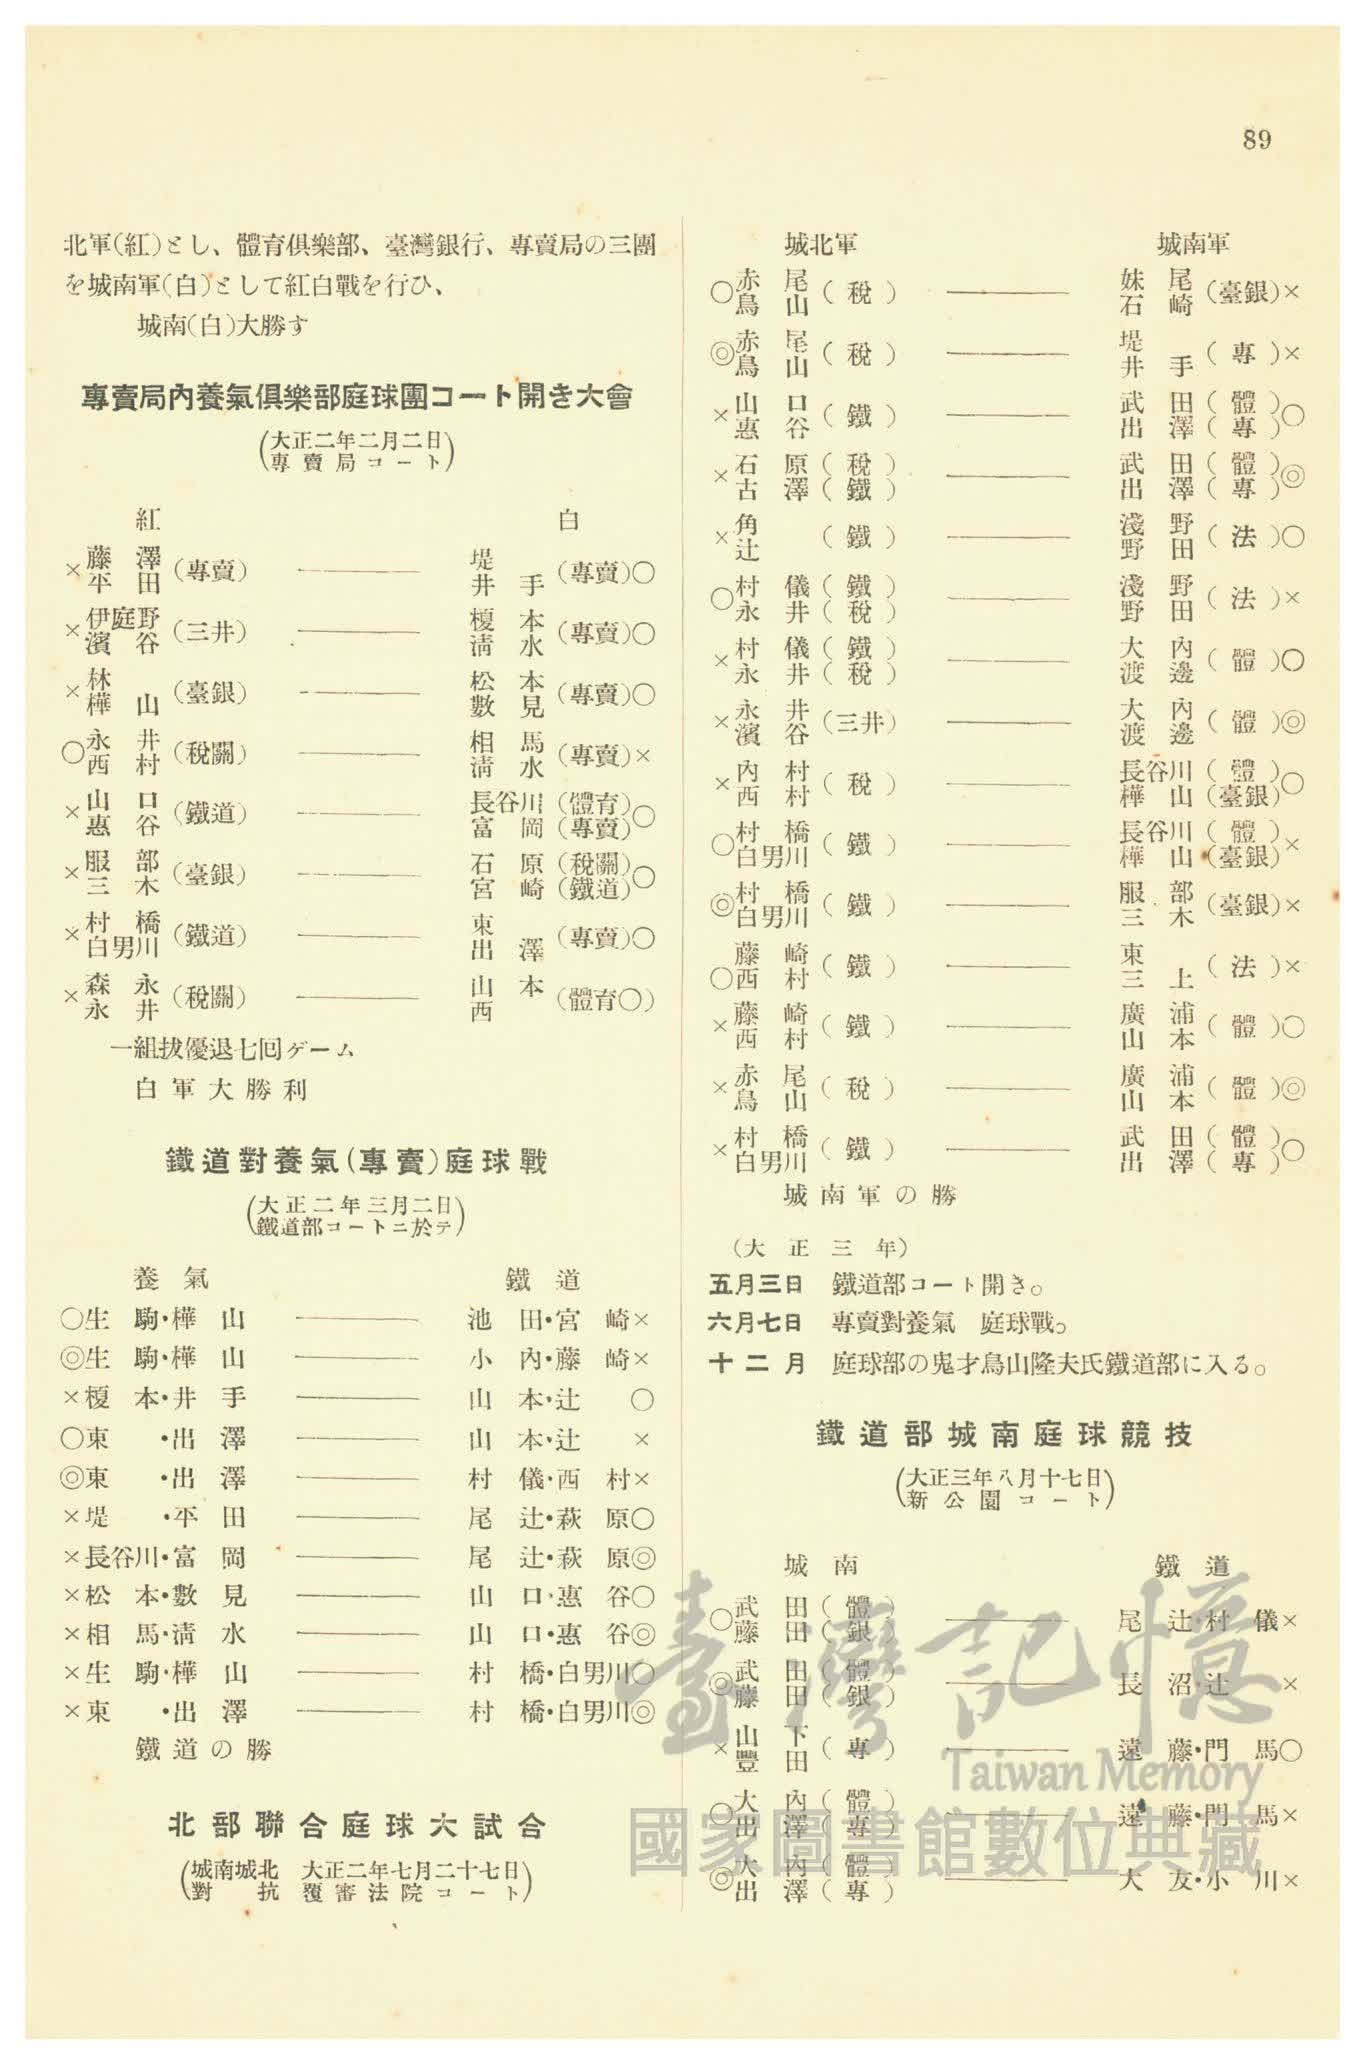 89
北軍(紅)とし、體育俱樂部、臺灣銀行、專賣局の三團
を城南軍(白)として紅白戰を行ひ、
城南(白)大勝す
專賣局內養氣俱樂部庭球團コート開き大會
(大正二年二月二日
專賣局コート)
紅 白
×藤澤 平田(專賣) ——— 堤 井手(專賣)○
×伊庭野 濱谷(三井) ——— 榎本 淸水(專賣)○
×林 樺山(臺銀) ——— 松本 數見(專賣)○
○永井 西村(稅關) ——— 相馬 淸水(專賣)×
×山口 惠谷(鐵道) ——— 長谷川(體育) 富岡(專賣)○
×服部 三木(臺銀) ——— 石原(稅關) 宮崎(鐵道)○
×村橋 白男川(鐵道) ——— 東 出澤(專賣)○
×森永 永井(稅關) ——— 山本 西(體育○)
一組拔優退七回ゲーム
白軍大勝利
鐵道對養氣(專賣)庭球戰
(大正二年三月二日
鐵道部コートニ於テ)
養氣 鐵道
○生駒・樺山 ——— 池田・宮崎×
◎生駒・樺山 ——— 小內・藤崎×
×榎本・井手 ——— 山本・辻○
○東・出澤 ——— 山本・辻×
◎東・出澤 ——— 村儀・西村×
×堤・平田 ——— 尾辻・萩原○
×長谷川・富岡 ——— 尾辻・萩原◎
×松本・數見 ——— 山口・惠谷○
×相馬・淸水 ——— 山口・惠谷◎
×生駒・樺山 ——— 村橋・白男川○
×東・出澤 ——— 村橋・白男川◎
鐵道の勝
北部聯合庭球大試合
(城南城北 大正二年七月二十七日
對抗 覆審法院コート)
城北軍 城南軍
○赤尾 鳥山(稅) ——— 妹尾 石崎(臺銀)×
◎赤尾 鳥山(稅) ——— 堤 井手(專)×
×山口 惠谷(鐵) ——— 武田(體) 出澤(專)○
×石原(稅) 古澤(鐵) ——— 武田(體) 出澤(專)◎
×角 辻(鐵) ——— 淺野 野田(法)○
○村儀(鐵) 永井(稅) ——— 淺野 野田(法)×
×村儀(鐵) 永井(稅) ——— 大內 渡邊(體)○
×永井 濱谷(三井) ——— 大內 渡邊(體)◎
×內村 西村(稅) ——— 長谷川(體) 樺山(臺銀)○
○村橋 白男川(鐵) ——— 長谷川(體) 樺山(臺銀)×
◎村橋 白男川(鐵) ——— 服部 三木(臺銀)×
○藤崎 西村(鐵) ——— 東 三上(法)×
×藤崎 西村(鐵) ——— 廣浦 山本(體)○
×赤尾 鳥山(稅) ——— 廣浦 山本(體)◎
×村橋 白男川(鐵) ——— 武田(體) 出澤(專)○
城南軍の勝
(大正三年)
五月三日 鐵道部コート開き。
六月七日 專賣對養氣 庭球戰。
十二月 庭球部の鬼才鳥山隆夫氏鐵道部に入る。
鐵道部城南庭球競技
(大正三年八月十七日
新公園コート)
城南 鐵道
○武田(體) 藤田(銀) ——— 尾辻・村儀×
◎武田(體) 藤田(銀) ——— 長沼・辻×
×山下 豐田(專) ——— 遠藤・門馬○
○大內(體) 出澤(專) ——— 遠藤・門馬×
◎大內(體) 出澤(專) ——— 大友・小川×
臺灣記憶
Taiwan Memory
國家圖書館數位典藏